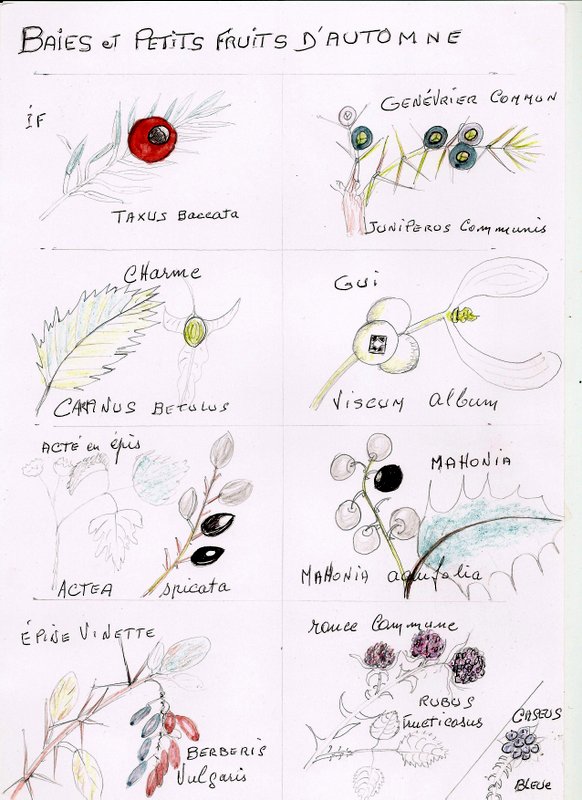 BAIES et PETITS FRUITS D'AUTOMNE
IF
TAXUS Baccata
GENÉVRIER COMMUN
JUNIPERUS COMMUNIS
CHARME
CARPINUS BETULUS
GUI
VISCUM album
ACTÉ en épis
ACTEA spicata
MAHONIA
MAHONIA aquifolia
ÉPINE VINETTE
BERBERIS
Vulgaris
ronce Commune
RUBUS
fructicosus
CASEUS
BLEUE